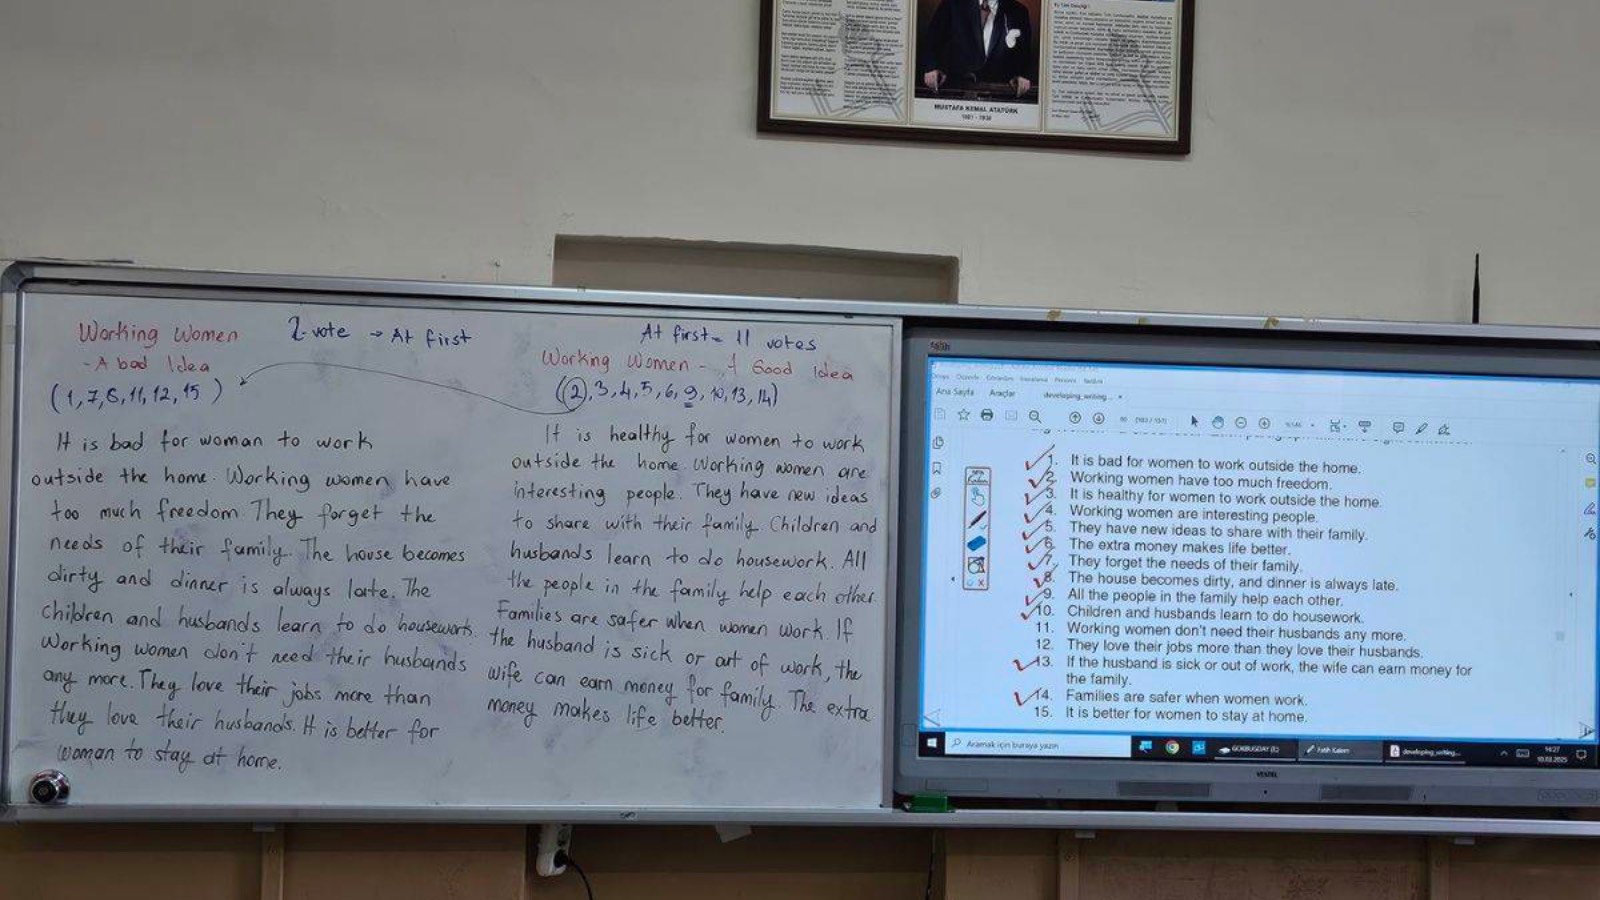 MUSTAFA KEMAL ATATÜRK
1881 - 1938
Ey Türk Gençliği!
Working Women
- A bad Idea
2 vote → At first
(1,7,8,11,12,15 )
It is bad for woman to work
outside the home. Working women have
too much freedom. They forget the
needs of their family. The house becomes
dirty and dinner is always late. The
children and husbands learn to do housework.
Working women don't need their husbands
any more. They love their jobs more than
they love their husbands. It is better for
woman to stay at home.
At first = 11 votes
Working Women - A Good Idea
(2,3,4,5,6,9,10,13,14)
It is healthy for women to work
outside the home. Working women are
interesting people. They have new ideas
to share with their family. Children and
husbands learn to do housework. All
the people in the family help each other.
Families are safer when women work. If
the husband is sick or out of work, the
wife can earn money for family. The extra
money makes life better.
Ana Sayfa Araçlar developing_writing...
1. It is bad for women to work outside the home.
2. Working women have too much freedom.
3. It is healthy for women to work outside the home.
4. Working women are interesting people.
5. They have new ideas to share with their family.
6. The extra money makes life better.
7. They forget the needs of their family.
8. The house becomes dirty, and dinner is always late.
9. All the people in the family help each other.
10. Children and husbands learn to do housework.
11. Working women don't need their husbands any more.
12. They love their jobs more than they love their husbands.
13. If the husband is sick or out of work, the wife can earn money for
the family.
14. Families are safer when women work.
15. It is better for women to stay at home.
Aramak için buraya yazın
GÖKBUGDAY (E:)
Fatih Kalem
developing_writing...
14:27
10.03.2025
VESTEL